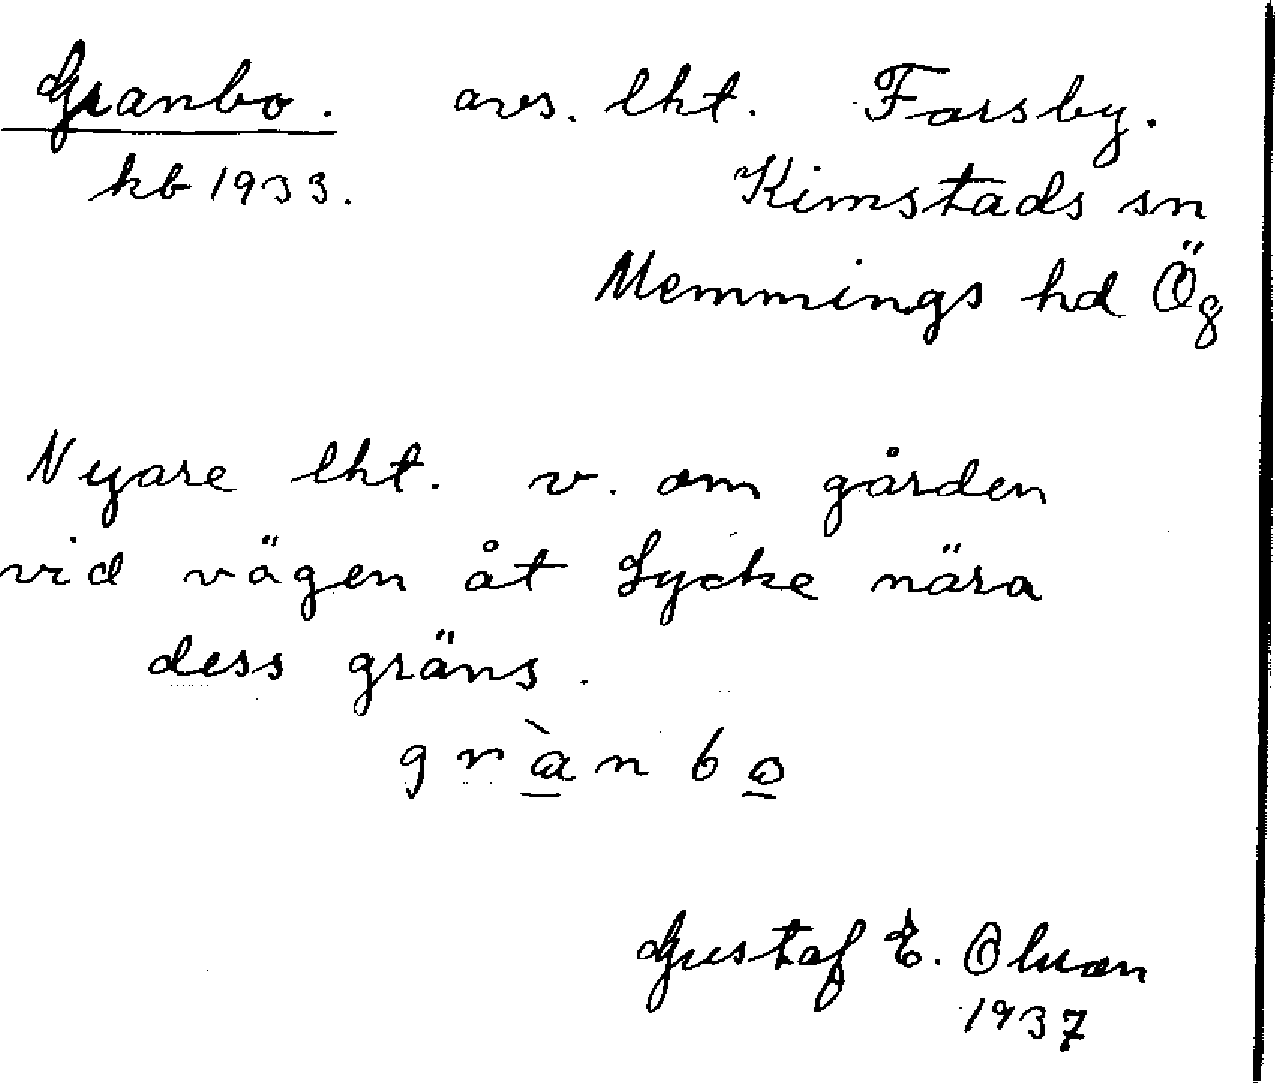 Granbo. avs. lht. Farsby.
kb 1933. Kimstads sn
Memmings hd Ög
Nyare lht. v. om gården
vid vägen åt Lycke nära
dess gräns.
grànbo
Gustaf E. Olsson
1937